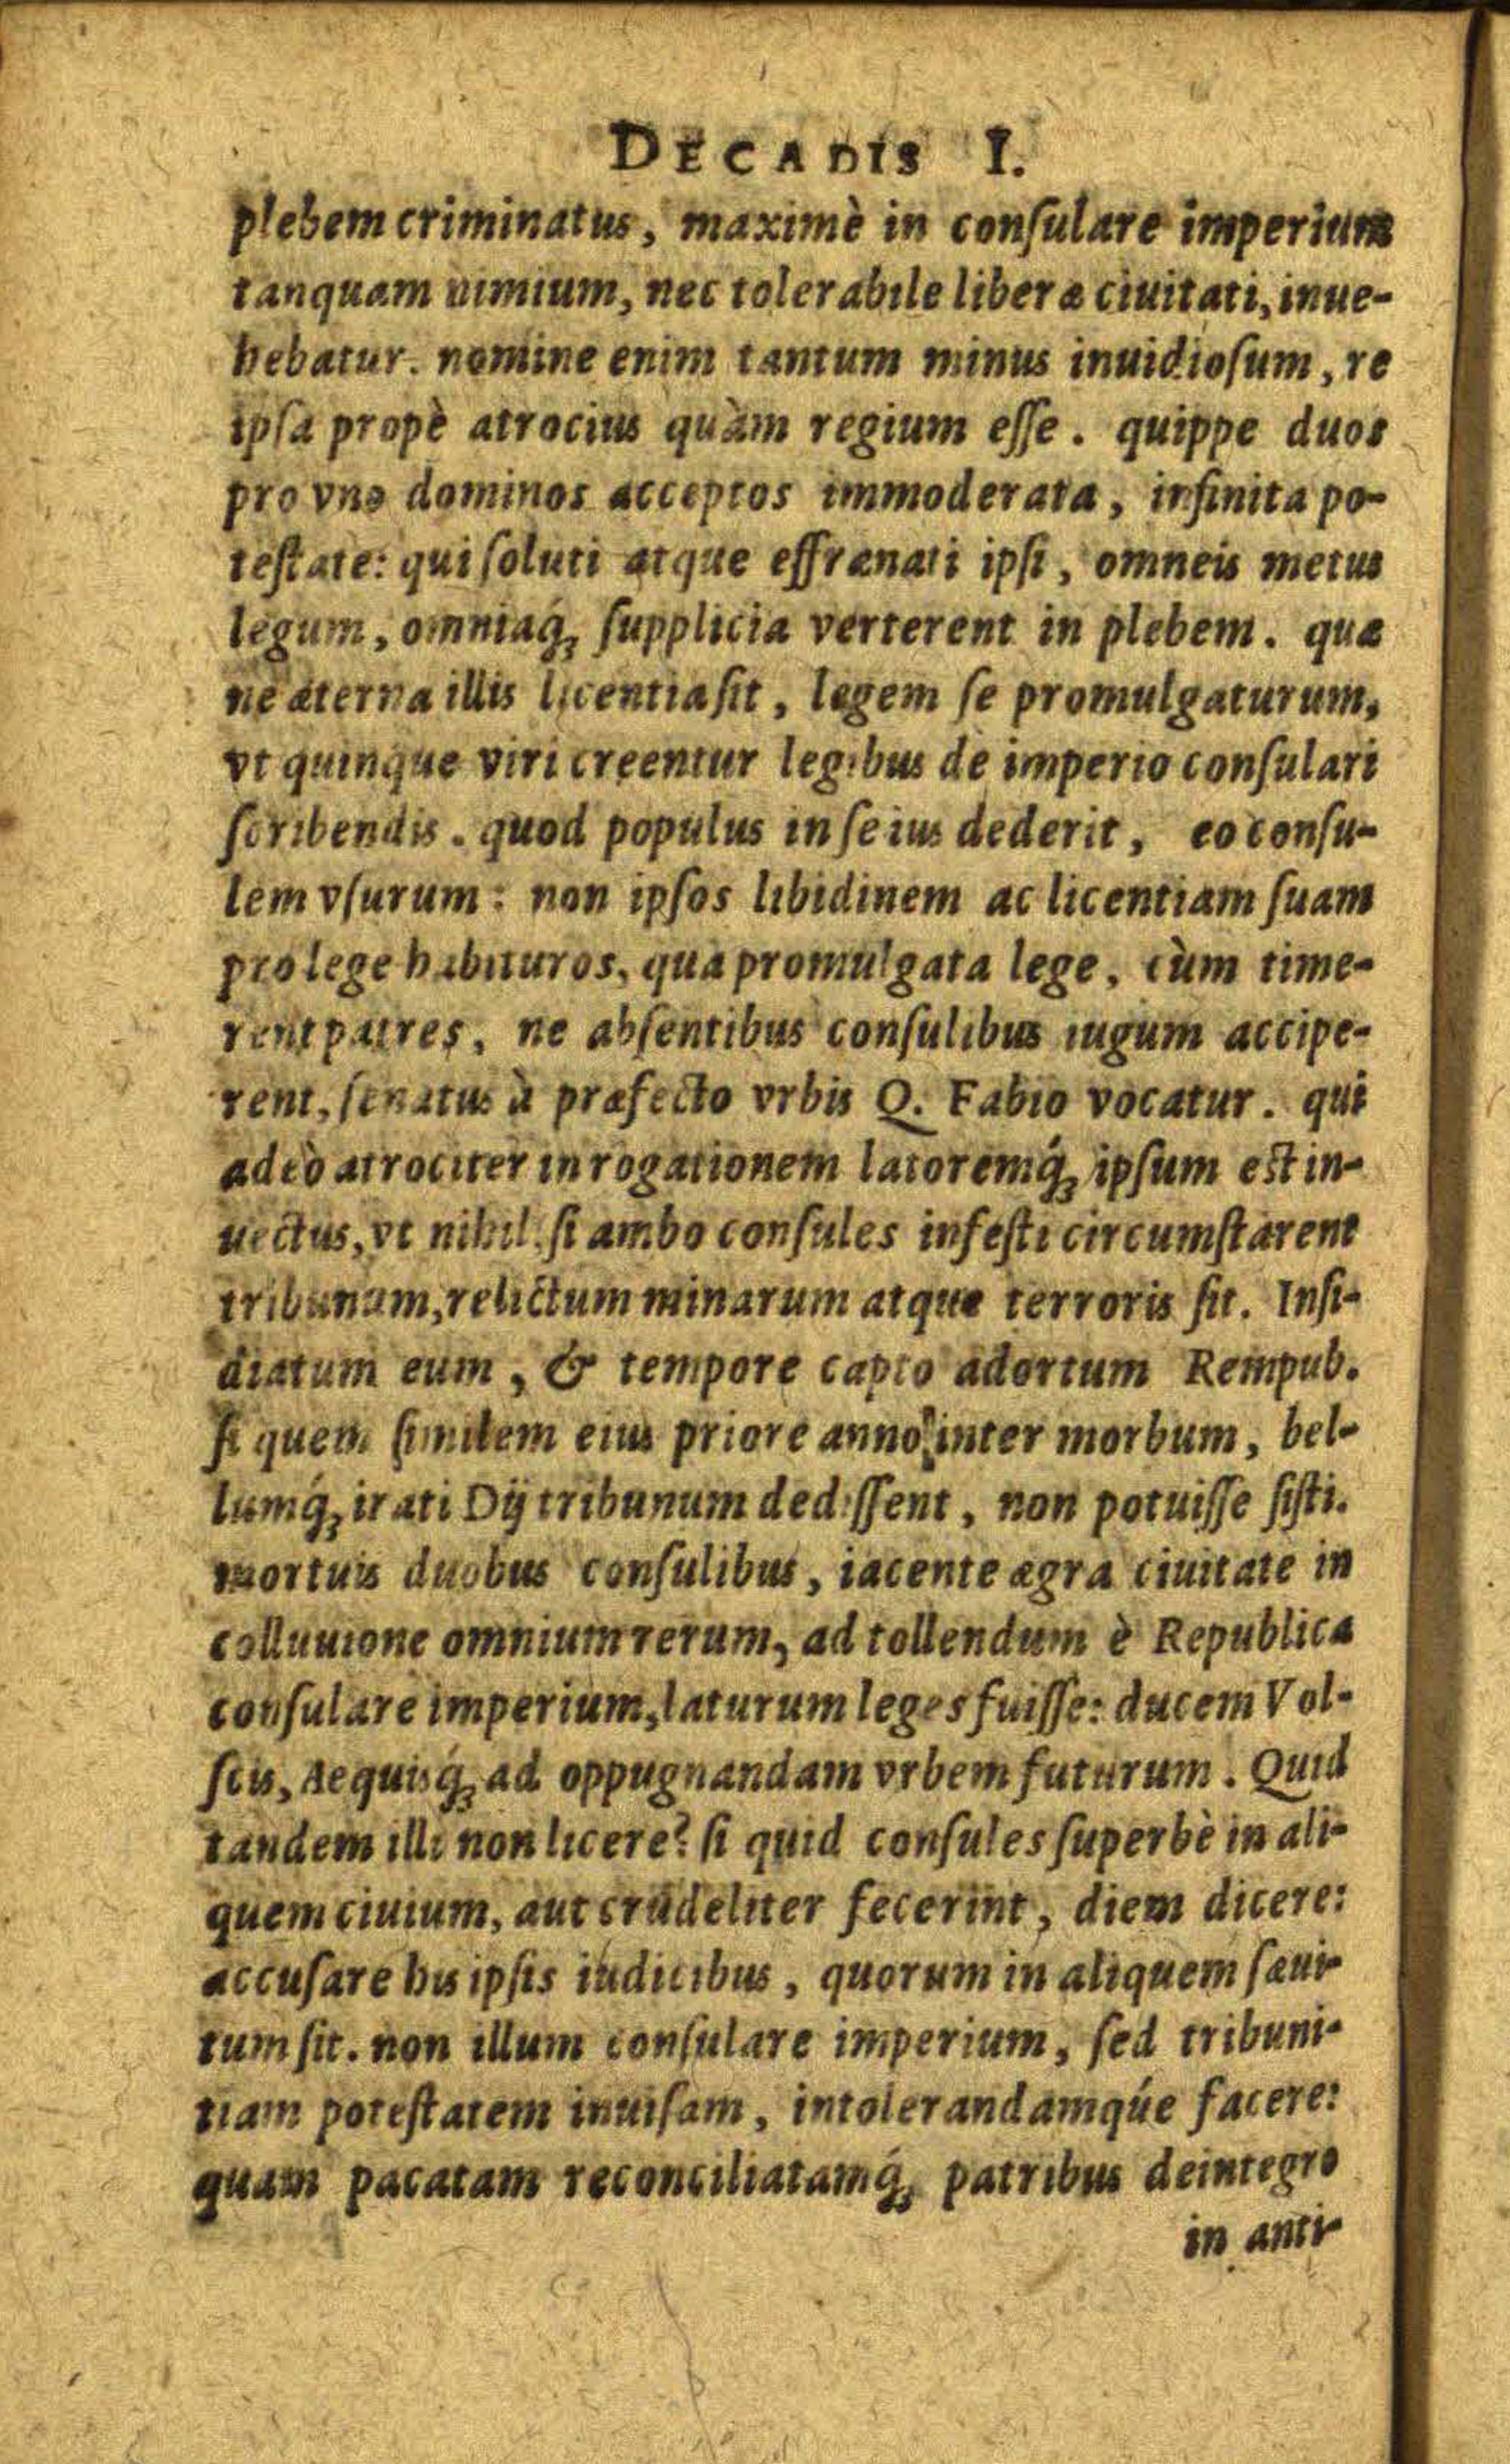 DECADIS I.
plebem criminatus, maximè in conſulare imperium
tanquam nimium, nec tolerabile liberæ ciuitati, inue-
hebatur. nomine enim tantum minus inuidioſum, re
ipſa propè atrocius quàm regium eſſe. quippe duos
pro vno dominos acceptos immoderata, infinita po-
teſtate: qui ſoluti atque effrænati ipſi, omneis metus
legum, omniaq́; ſupplicia verterent in plebem. quæ
ne æterna illis licentia ſit, legem ſe promulgaturum,
vt quinque viri creentur legibus de imperio conſulari
ſcribendis. quod populus in ſe ius dederit, eo conſu-
lem vſurum: non ipſos libidinem ac licentiam ſuam
pro lege habituros, qua promulgata lege, cùm time-
rent patres, ne abſentibus conſulibus iugum accipe-
rent, ſenatus à præfecto vrbis Q. Fabio vocatur. qui
adeò atrociter in rogationem latoremq́; ipſum est in-
uectus, vt nihil, ſi ambo conſules infeſti circumſtarent
tribunum, relictum minarum atque terroris ſit. Inſi-
diatum eum, & tempore capto adortum Rempub.
ſi quem ſimilem eius priore anno inter morbum, bel-
lumq́; irati Dij tribunum dediſſent, non potuiſſe ſiſti.
mortuis duobus conſulibus, iacente ægra ciuitate in
colluuione omnium rerum, ad tollendum è Republica
conſulare imperium, laturum leges fuiſſe: ducem Vol-
ſcis, Aequisq́; ad oppugnandam vrbem futurum. Quid
tandem illi non licere? ſi quid conſules ſuperbè in ali-
quem ciuium, aut crudeliter fecerint, diem dicere:
accuſare his ipſis iudicibus, quorum in aliquem ſæui-
tum ſit. non illum conſulare imperium, ſed tribuni-
tiam poteſtatem inuiſam, intolerandamqúe facere:
quam pacatam reconciliatamq́; patribus deintegro
in anti-